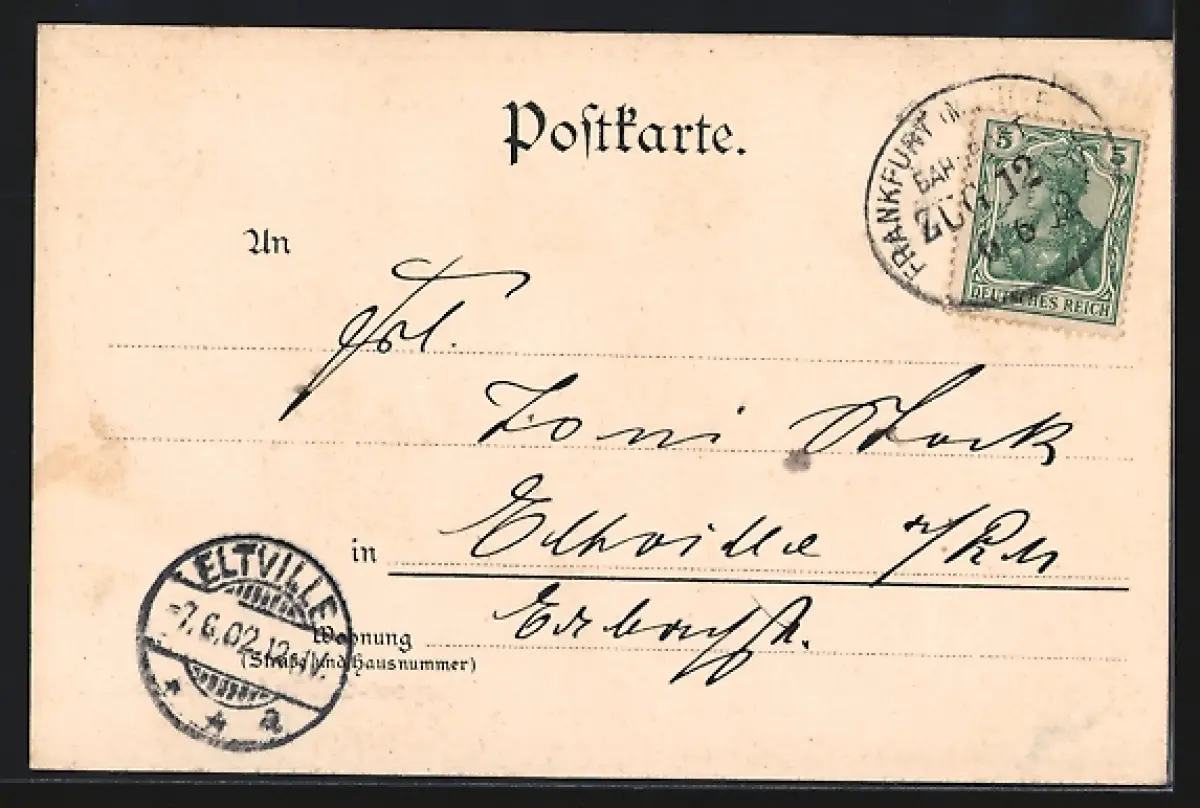 Postkarte.
FRANKFURT
BAH
ZUG 12
6 6
5 5
DEUTSCHES REICH
An
Frl.
Toni Stock
in Eltville a/Rh
Wohnung
(Straße und Hausnummer)
ELTVILLE
-7.6.02.12-1N.
* a